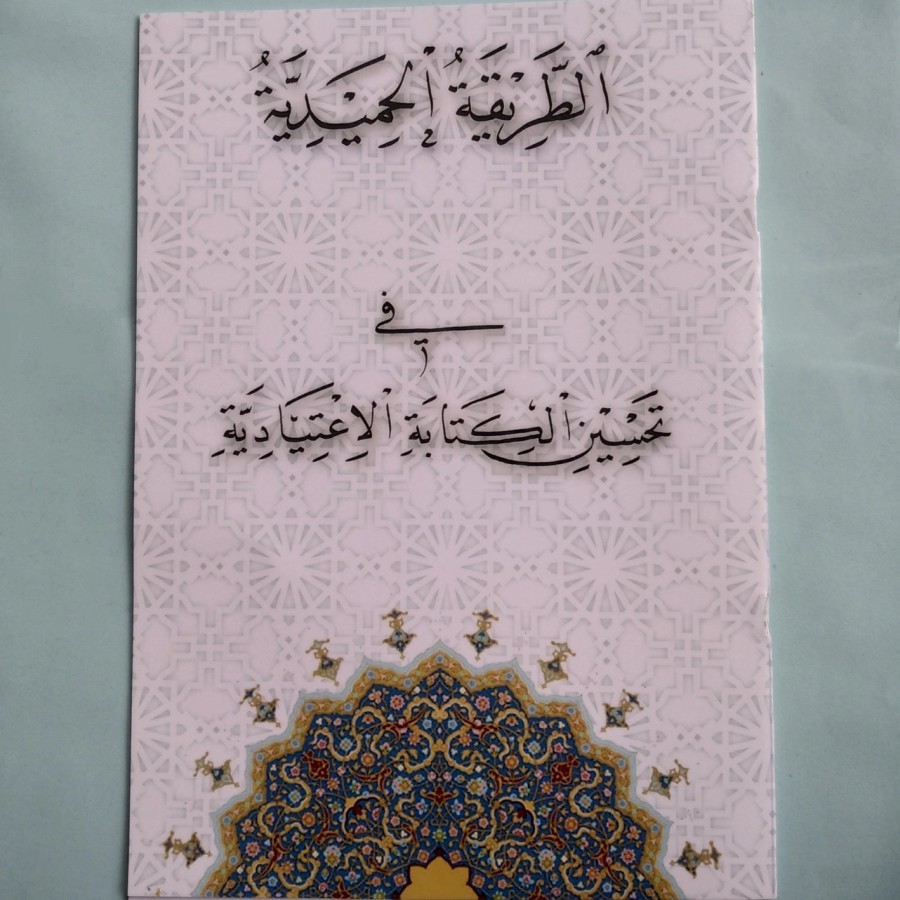 اَلطَّرِيْقَةُ اْلحَمِيْدِيَّةُ
فِي
تَحْسِيْنِ اْلكِتَابَةِ اْلاِعْتِيَادِيَّةِ